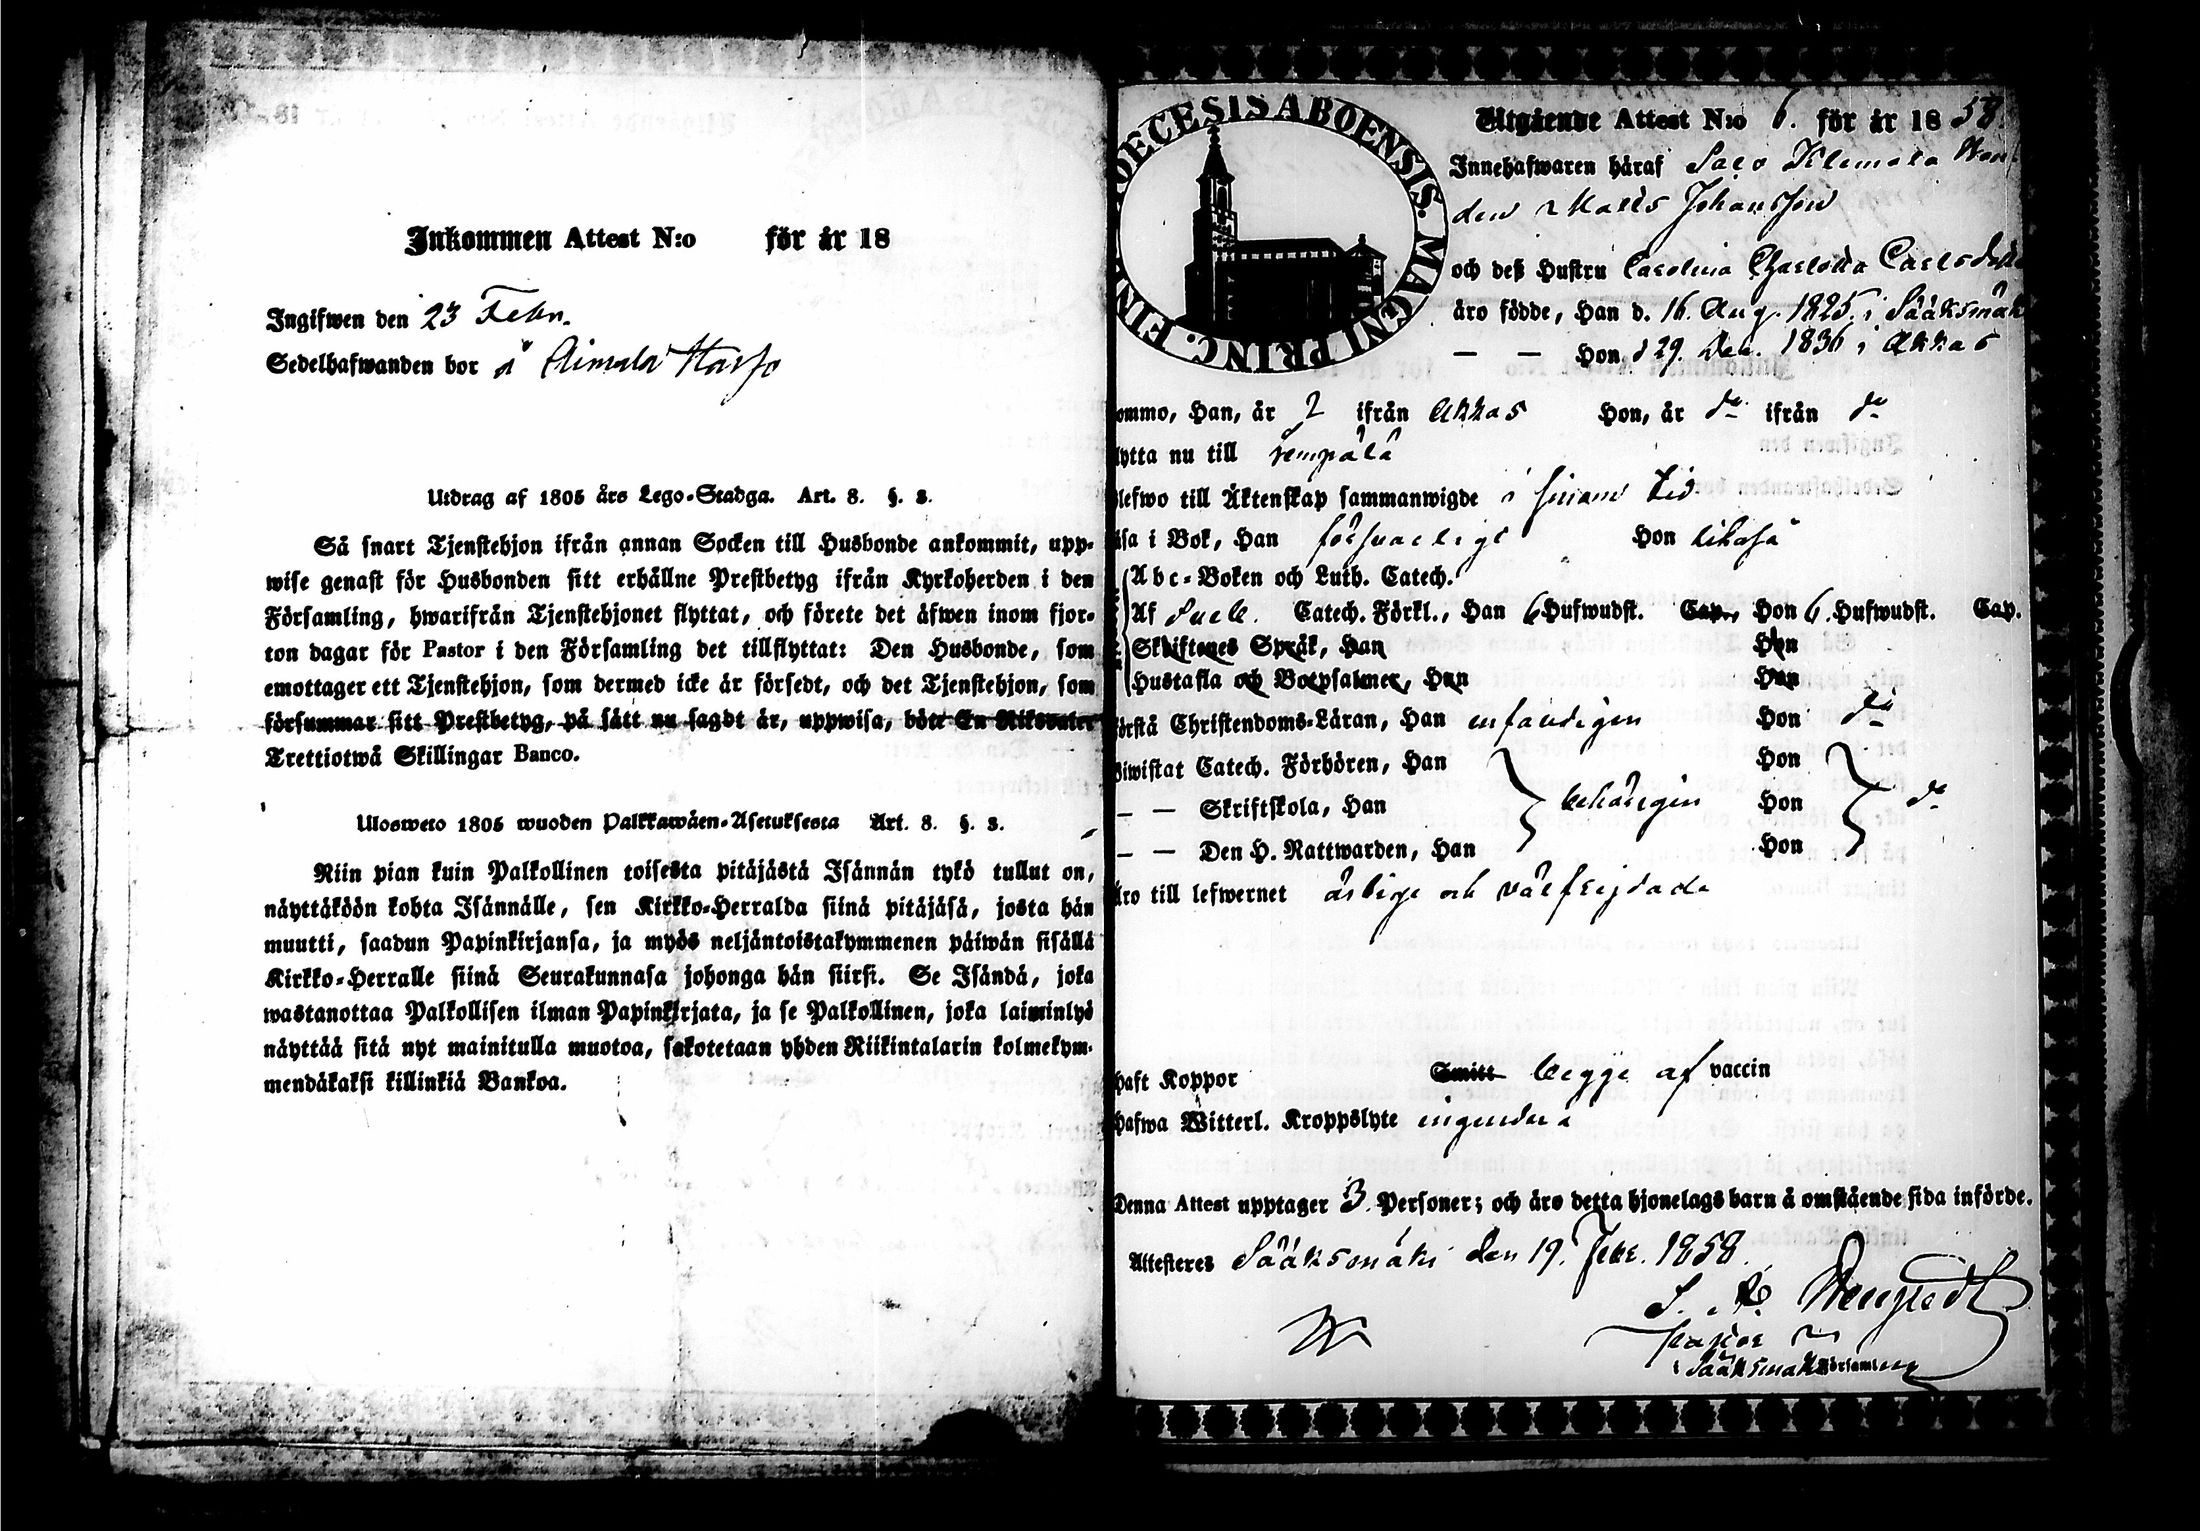 Inkommen Attest N:o för år 18
Ingifwen den 23 Febr.
Sedelhafwanden bor å
Utdrag af 1805 års Lego-Stadga. Art. 8. §. 3.
Så snart Tjenstehjon ifrån annan Socken till Husbonde ankommit, upp-
wise genast för Husbonden sitt erhållne Prestbetyg ifrån Kyrkoherden i den
Församling, hwarifrån Tjenstehjonet flyttat, och förete det äfwen inom fjor-
ton dagar för Pastor i den Församling det tillflyttat: Den Husbonde, som
emottager ett Tjenstehjon, som dermed icke är försedt, och det Tjenstehjon, som
försummar sitt Prestbetyg, på sätt nu sagdt är, uppwisa, böte En Riksdaler
Trettiotwå Skillingar Banco.
Ulosweto 1805 wuoden Palkkawäen-Asetuksesta Art. 8. §. 3.
Niin pian kuin Palkollinen toisesta pitäjästä Isännän tykö tullut on,
näyttäköön kohta Isännälle, sen Kirkko-Herralda siinä pitäjäsä, josta hän
muutti, saadun Papinkirjansa, ja myös neljäntoistakymmenen päiwän sisällä
Kirkko-Herralle siinä Seurakunnasa johonga hän siirsi. Se Isändä, joka
wastanottaa Palkollisen ilman Papinkirjata, ja se Palkollinen, joka laiminlyö
näyttää sitä nyt mainitulla muotoa, sakotetaan yhden Riikintalarin kolmekym-
mendäkaksi killinkiä Bankoa.
DECESIS ABOENSIS. MAGNI PRINC. FIN
Utgående Attest N:o 6. för år 1858.
Innehafwaren häraf Klemola
den Matts Johansson
och deß Hustru Carolina Charlotta Carlsdotter
äro födde, Han d. 16. Aug. 1825. i Sääksmäki
— — Hon d 29. Dec. 1836 i Akkas
ommo, Han, år ifrån Akkas Hon, år do ifrån do
lytta nu till Lempälä
lefwo till Äktenskap sammanwigde i sinom tid
äsa i Bok, Han försvarligt Hon likaså
Abc-Boken och Luth. Catech.
Af Catech. Förkl., Han 6 Hufwudst. Cap., Hon 6. Hufwudst. Cap.
Skriftenes Språk, Han Hon
Hustafla och Botpsalmer, Han Hon
örstå Christendoms-Läran, Han enfaldigen Hon do
iwistat Catech. Förhören, Han Hon
— — Skriftskola, Han behörigen Hon do
— — Den H. Nattwarden, Han Hon
äro till lefwernet ärlige och välfrejdade
haft Koppor Smitt begge af vaccin
hafwa Witterl. Kroppslyte ingendera
Denna Attest upptager 3 Personer; och äro detta hjonelags barn å omstående sida införde.
Attesteres Sääksmäki den 19. Febr. 1858.
Pastor
i Sääksmäki Församling